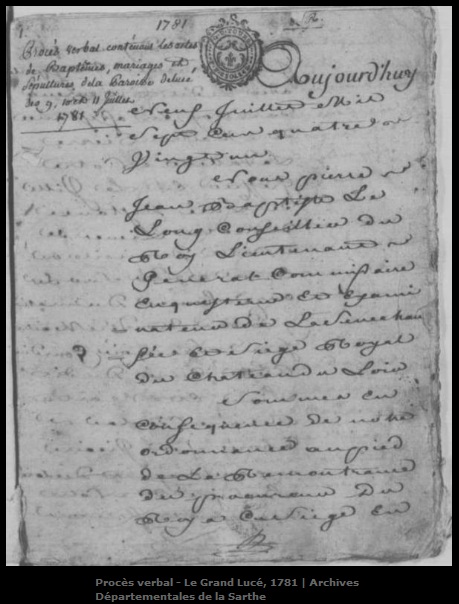 1781
Procès verbal contenant les actes
de Baptêmes, mariages et
sépultures, de la Paroisse de Lucé
des 9, 10 et 11 Juillet
1781
Aujourd'huy
Neuf Juillet Mil
Sept Cent quatre
Vingt un
Nous pierre
Jean Baptiste Le
Long Conseiller du
Roy Lieutenant
General Commissaire
Enquesteur et Exami
nateur de La Senechau
sée et Siege Royal
du Chateau du Loir
Sommes en
Consequence de notre
ordonnance au pied
de La Remontrance
du procureur du
Roy a Ce Siege en
Procès verbal - Le Grand Lucé, 1781 | Archives
Départementales de la Sarthe